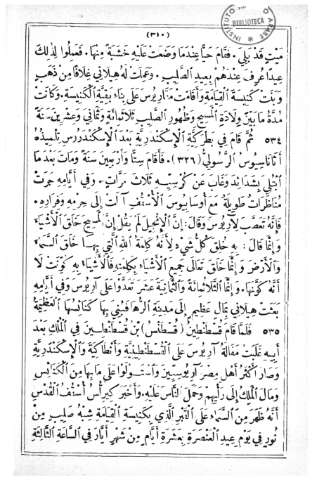 (٣١٠)
INSTITUTO
BIBLIOTECA
ميت قد بلي. فقام حيًّا عندما وضعت عليه خشبة منها. فعملوا لذلك
عيدًا عُرف عندهم بعيد الصليب. وعملت له هيلاني غلافًا من ذهب
وبنت كنيسة القيامة وأقامت مقاريوس على بناء بقية الكنيسة. وكانت
مدة ما بين ولادة المسيح وظهور الصليب ثلاثمائة وثماني وعشرين سنة
٥٣٤ ثم قام في بطركية الإسكندرية بعد الإسكندروس تلميذه
أثناسيوس الرسولي (٣٢٦). فأقام ستًّا وأربعين سنة ومات بعد ما
ابتلي بشدائد وغاب عن كرسيه ثلاث مرات. وفي أيامه جرت
مناظرات طويلة مع أوسابيوس الأسقف آلت إلى حرمه وفراره.
فإنه تعصب لآريوس وقال: إن الإنجيل لم يقل إن المسيح خالق الأشياء
وإنما قال: به خُلق كل شيء لأنه كلمة الله التي بها خلق السماء
والأرض وإنما خلق تعالى جميع الأشياء بكلمته فالأشياء به كونت لا
أنه كونها وإنما الثلاثمائة والثمانية عشر تعدوا على آريوس. وفي أيامه
بعثت هيلاني بمال عظيم إلى مدينة الرها فبني بها كنائسها العظيمة
٥٣٥ فلما قام قسطنطين (قسطنس) ابن قسطنطين في الملك بعد
أبيه غلبت مقالة آريوس على القسطنطينية وأنطاكية والإسكندرية
وصار أكثر أهل مصر آريوسيين واستولوا على ما بها من الكنائس
ومال الملك إلى رأيهم وحمل الناس عليه. وأخبر كيرلس أسقف القدس
أنه ظهر من السماء على القبر الذي بكنيسة القيامة شبه صليب من
نور في يوم عيد العنصرة بعشرة أيام من شهر أيار في الساعة الثالثة